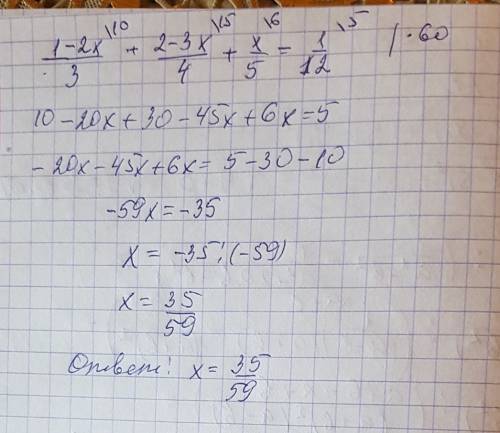 (1-2x)/3 \10 + (2-3x)/4 \15 + x/5 \6 = 1/12 \5 /·60
10-20x+30-45x+6x=5
-20x-45x+6x=5-30-10
-59x=-35
x=-35:(-59)
x=35/59
Ответ: x=35/59